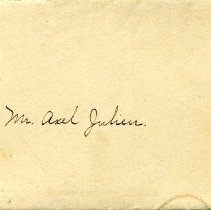 Mr. Axel Julien.